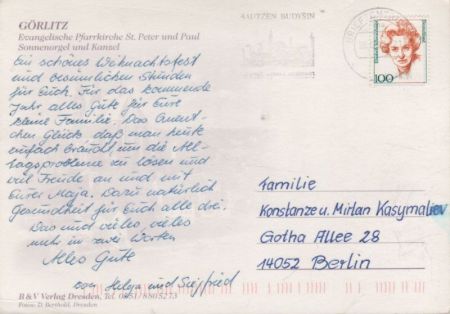 GÖRLITZ
Evangelische Pfarrkirche St. Peter und Paul
Sonnenorgel und Kanzel
BAUTZEN BUDYŠIN
100
Ein schönes Weihnachtsfest
und besinnlichen Stunden
für Euch. Für das kommende
Jahr alles Gute für Eure
kleine Familie. Das
Glück daß man heute
einfach braucht um die All-
tagsprobleme zu lösen und
viel Freude an und mit
Eurer Maja. Dazu natürlich
Gesundheit für Euch alle drei.
Das und vieles vieles
mehr in zwei Worten
Alles Gute
von Helga und Siegfried
Familie
Konstanze u. Mirlan Kasymaliev
Gotha Allee 28
14052 Berlin
B & V Verlag Dresden, Tel. 0351/8805273
Fotos: D. Berthold, Dresden